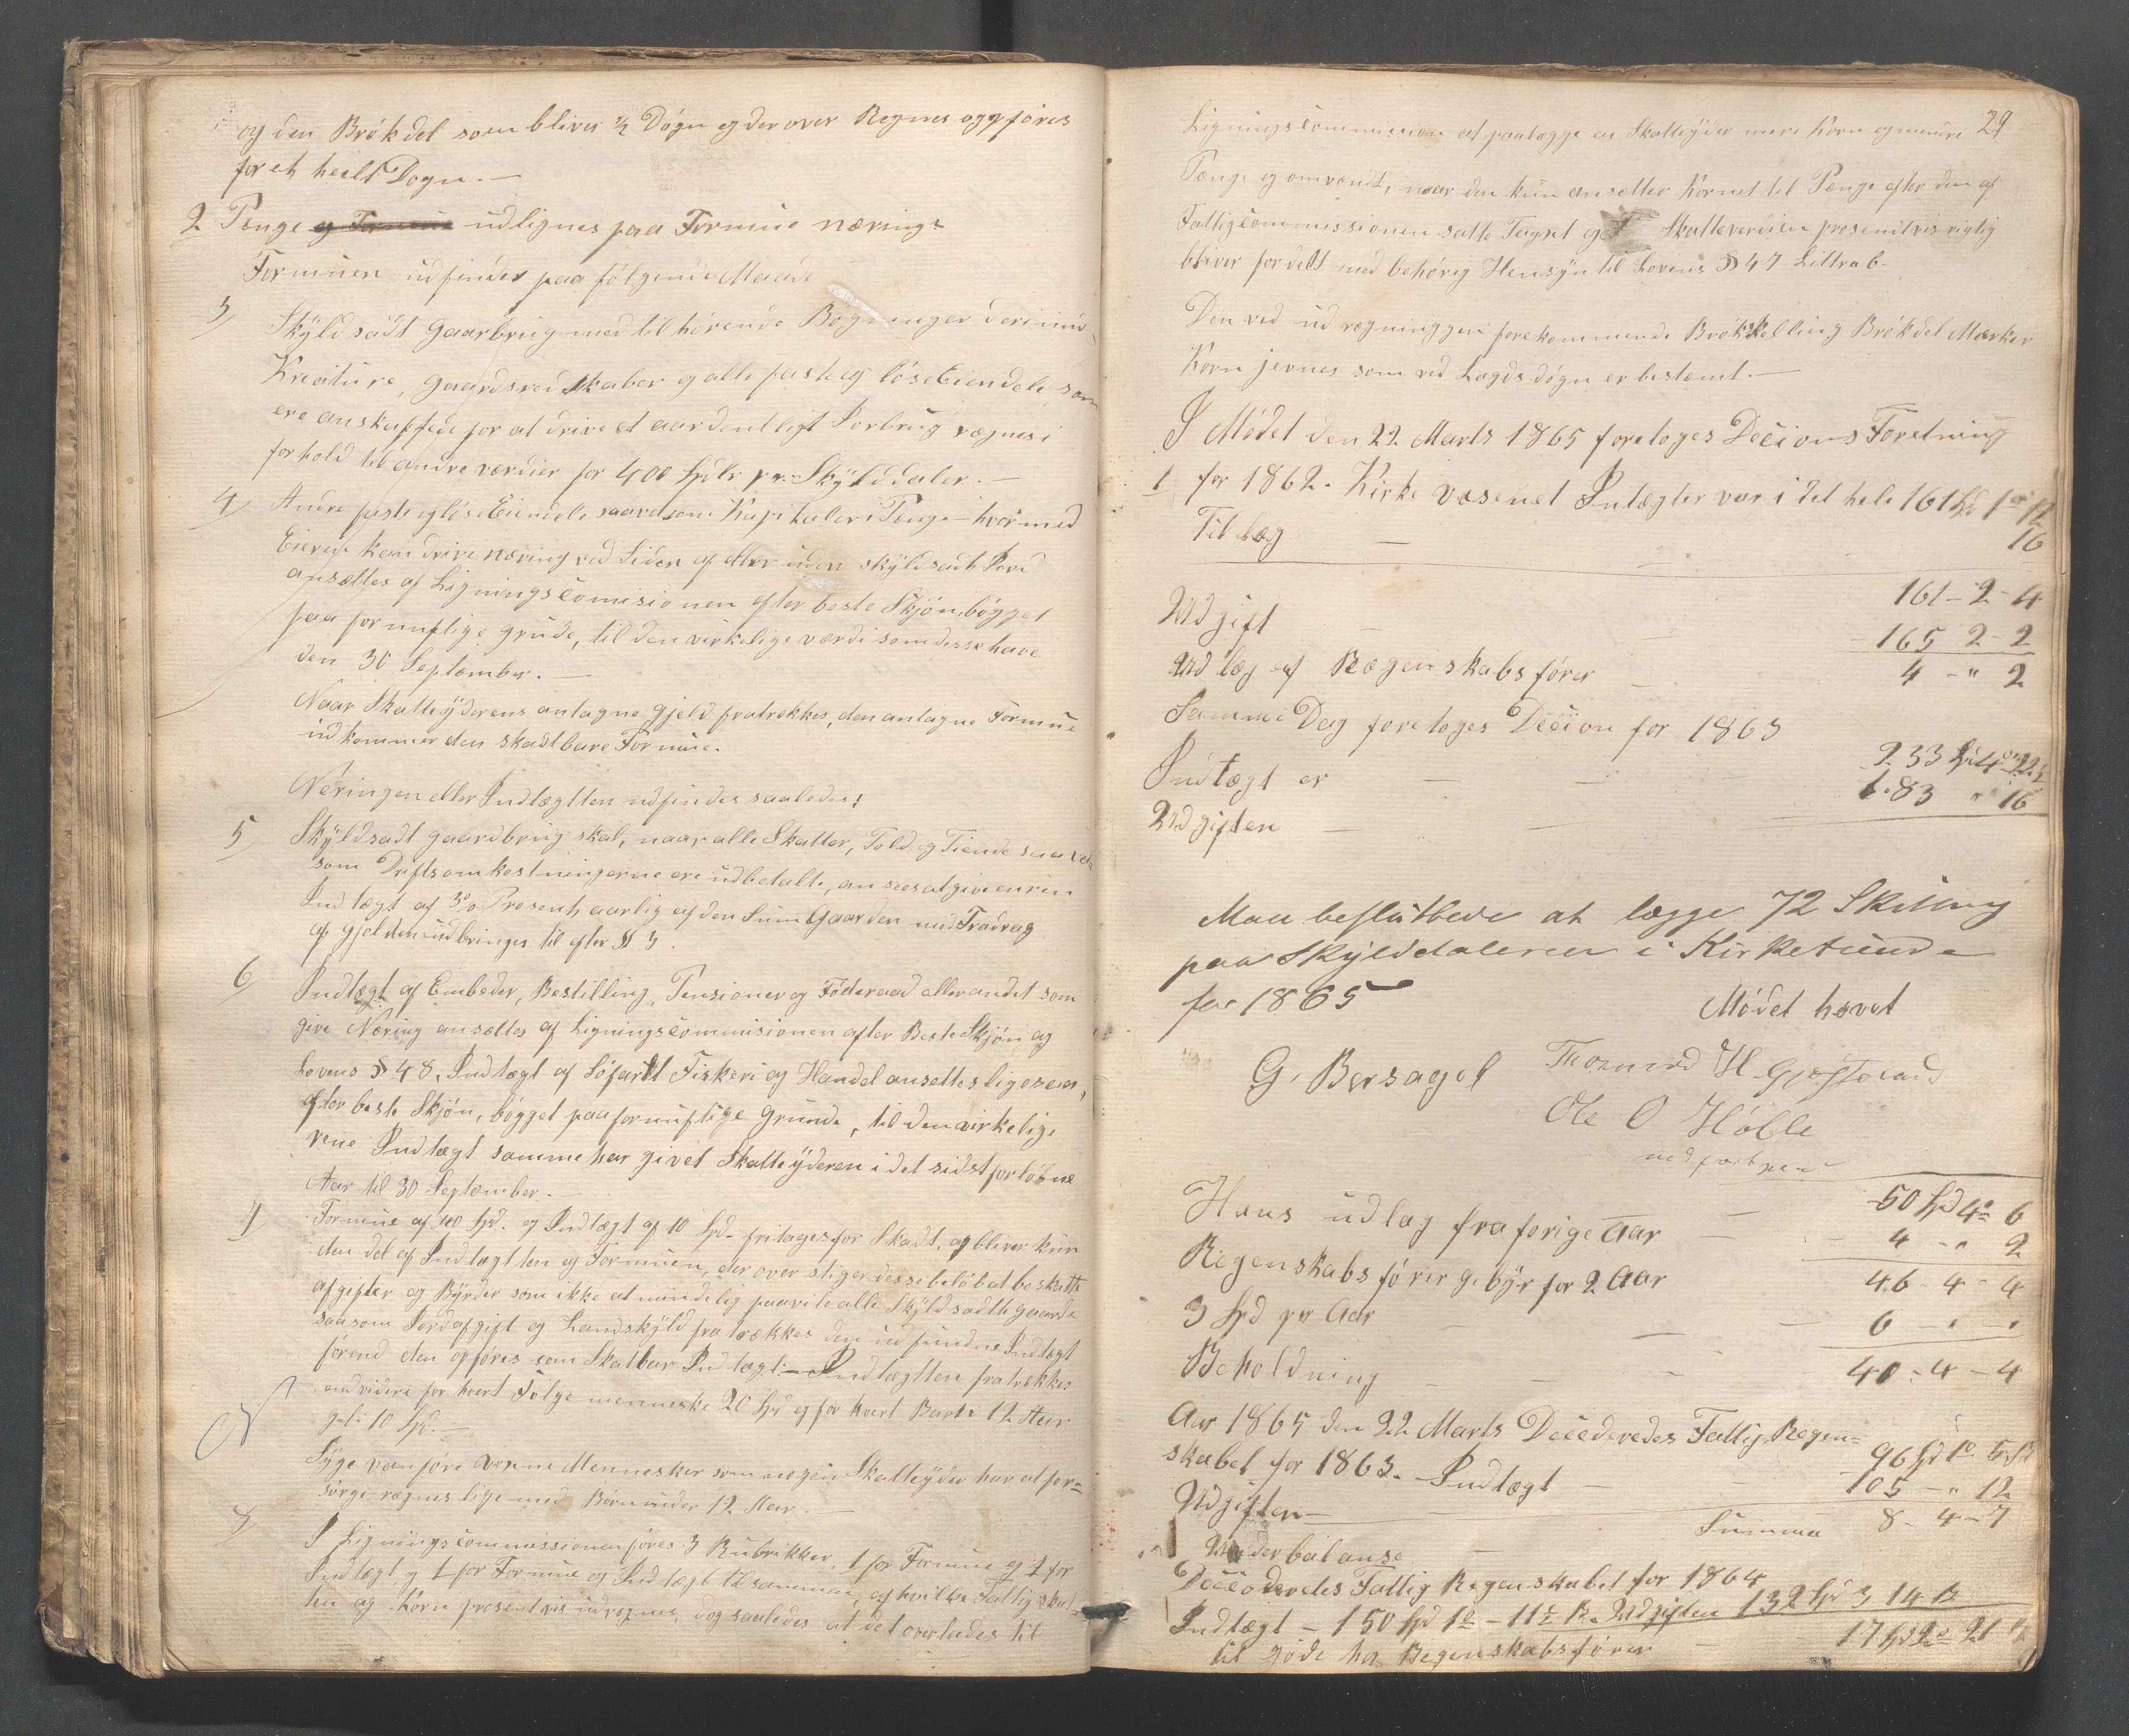 og den Brøkdel som bliver ½ Døgn og derover Regnes og opføres
for et heelt Døgn. —
2 Penge og Formue udlignes paa Formue næring
Formuen udfindes paa følgende Maade
3/ Skyldsadt Gaarbrug med tilhørende Bygninger
Kreature, Gaardsredskaber og alle faste og løse Eiendele som
ere anskaffede for at drive et aardentligt Jorbrug regnes i
forhold til andre værdier for 400 Spdlr pr. Skylddaler. —
4/ Andre faste og løse Eiendele saavelsom Kapitaler i Penge - hvormed
Eieren kan drive næring ved Siden af eller uden skyldsadt Jord
ansættes af Ligningscomisionen efter beste Skjøn, bøgget
paa fornuftige grunde, til den virkelige værdi som disse have
den 30 September. —
Naar Skatteÿderens antagne gjeld fratrekkes, den antagne Formue
udkommer den skadtbare Formue.
Næringen eller Indtægtten udfindes saaledes:
5/ Skÿldsadt gaardbrug skal, naar alle Skatter, Told og Tiende saavel
som Driftsomkostningerne ere udbetalte, an sees at give en rein
Indtægt af 3% Prosent aarlig af den Sum Gaarden med Fradrag
af gjelden udbringes til efter § 3.
6/ Indtægt af Embeder, Bestilling, Pensioner og Føderaad eller andet som
give Næring ansættes af Ligningscommisionen efter Beste Skjøn og
Lovens § 48, Indtægt af Søfart Fiskeri og Handel ansettes ligesom,
efter beste Skjøn, bøgget paa fornuftige Grunde, til den virkelige
rene Indtægt samme har givet Skatteÿderen i det sidst forløbne
Aar til 30 September. —
7/ Formue af 40 Spd. og Indtægt af 10 Spd. fritages for Skadt, og bliver kun
den del af Indtægtten og Formuen, der over stiger desse beløb at beskatte
afgifter og Bÿrder som ikke almindelig paavile alle Skÿldsadte gaarde
saasom Jordafgift og Landskÿld fratrækkes den udfundne Indtægt
førend den opføres som Skatbar Indtægt. — Indtægtten fratrekkes
endvidere for hvert Følge menneske 20 Spd og for hvert Barn 12 Aar
10 Spd. —
Sÿge vanføre voxne Mennesker som nogen Skatteÿder har at for=
sørge regnes lige med Børn under 12 Aar. —
8/ I Ligningscommissionen føres 3 Rubrikker, 1 for Formue og 1 for
Indtægt og 1 for Formue og Indtægt tilsammen, af hvilke Fattigskat
ten og Korn prosentvis udregnes, dog saaledes at det overlades til
29
Ligningscommission at paalægge en Skatteÿder mere Korn og mindre
Penge og omvendt, naar den kun ansætter Kornet til Penge efter den af
Fattigcommissionen satte Taxst og at Skatteverdien prosentvis rigtig
bliver fordelt med behørig Hensÿn til Lovens § 47 Littra b.
Den ved udregninggen forekommende Brøkskelling Brøkdel Mærker
Korn jevnes som ved Lægds døgn er bestemt. —
I Mødet den 22 Marts 1865 foretoges Decions Foretning
1 for 1862. Kirke væsenet Intægter var i det hele 161 Spd 1 ort 12
Til læg — 16
161 - 2 - 4
Udgift — 165 2 - 2
Udlæg af Regenskabsfører — 4 - " 2
Samme Dag foretoges Decion for 1863
Indtægt er — 233 Spd 4 ort 22½
Udgiften — 183 " 16
Man besluttede at lægge 72 Skilling
paa Skylddaleren i Kirketiende
for 1865
Mødet hævet
G. Bersagel Thormod H Gjøsteland
Ole O Hølle
med paaholden pen
Hans udlæg fra forige Aar — 50 Spd 4 o 6
4 - " 2
Regenskabsfører gebÿr for 2 Aar 46 - 4 - 4
3 Spd pr Aar — 6 - " "
Beholdning — 40 - 4 - 4
Aar 1865 den 22 Marts Decideredes Fattig Regen=
skabet for 1863. Indtægt — 96 Spd 1 o 5 s
Udgiften — 105 - " 12
Summa 8 - 4 - 7
Underbalanse
Decideredes Fattig Regenskabet for 1864
Indtægt - 150 Spd 1 o - 11½ s. Udgiften 132 Spd 3, 14 s
til gode ha Regenskabsfører — 17 Spd 2 o 21 s